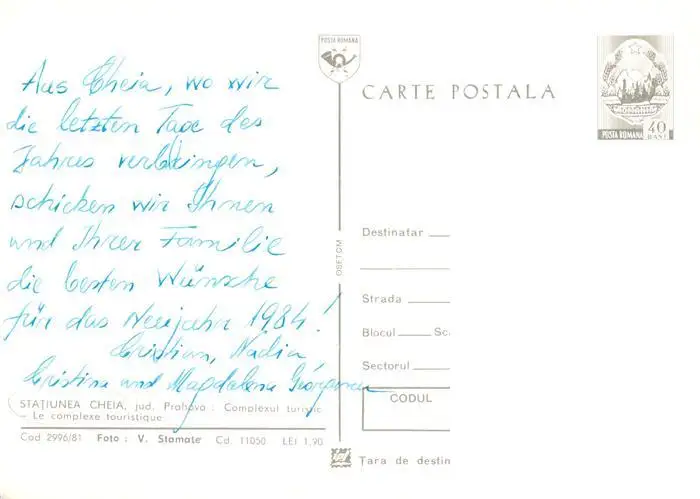 Aus Cheia, wo wir
die letzten Tage des
Jahres verbringen,
schicken wir Ihnen
und Ihrer Familie
die besten Wünsche
für das Neujahr 1984!
Cristian, Nadia
Cristina und Magdalena
STAȚIUNEA CHEIA, jud. Prahova : Complexul turistic
Le complexe touristique
Cod 2996/81 Foto : V. Stamate Cd. 11050 LEI 1,90
OSETCM
POSTA ROMANA
CARTE POSTALA
POSTA ROMANA 40 BANI
Destinatar
Strada
Blocul Sc
Sectorul
CODUL
Țara de destin